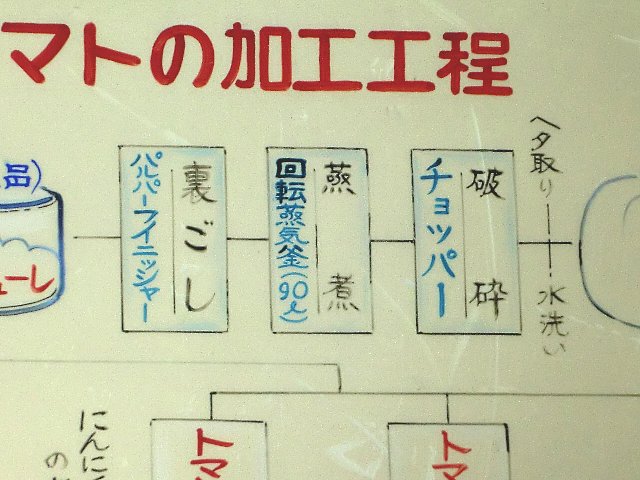 マトの加工工程
ヘタ取り
水洗い
破砕
チョッパー
蒸煮
回転蒸気釜(90ℓ)
裏ごし
パルパーフィニッシャー
品)
ューレ
トマ
トマ
にんにく
の